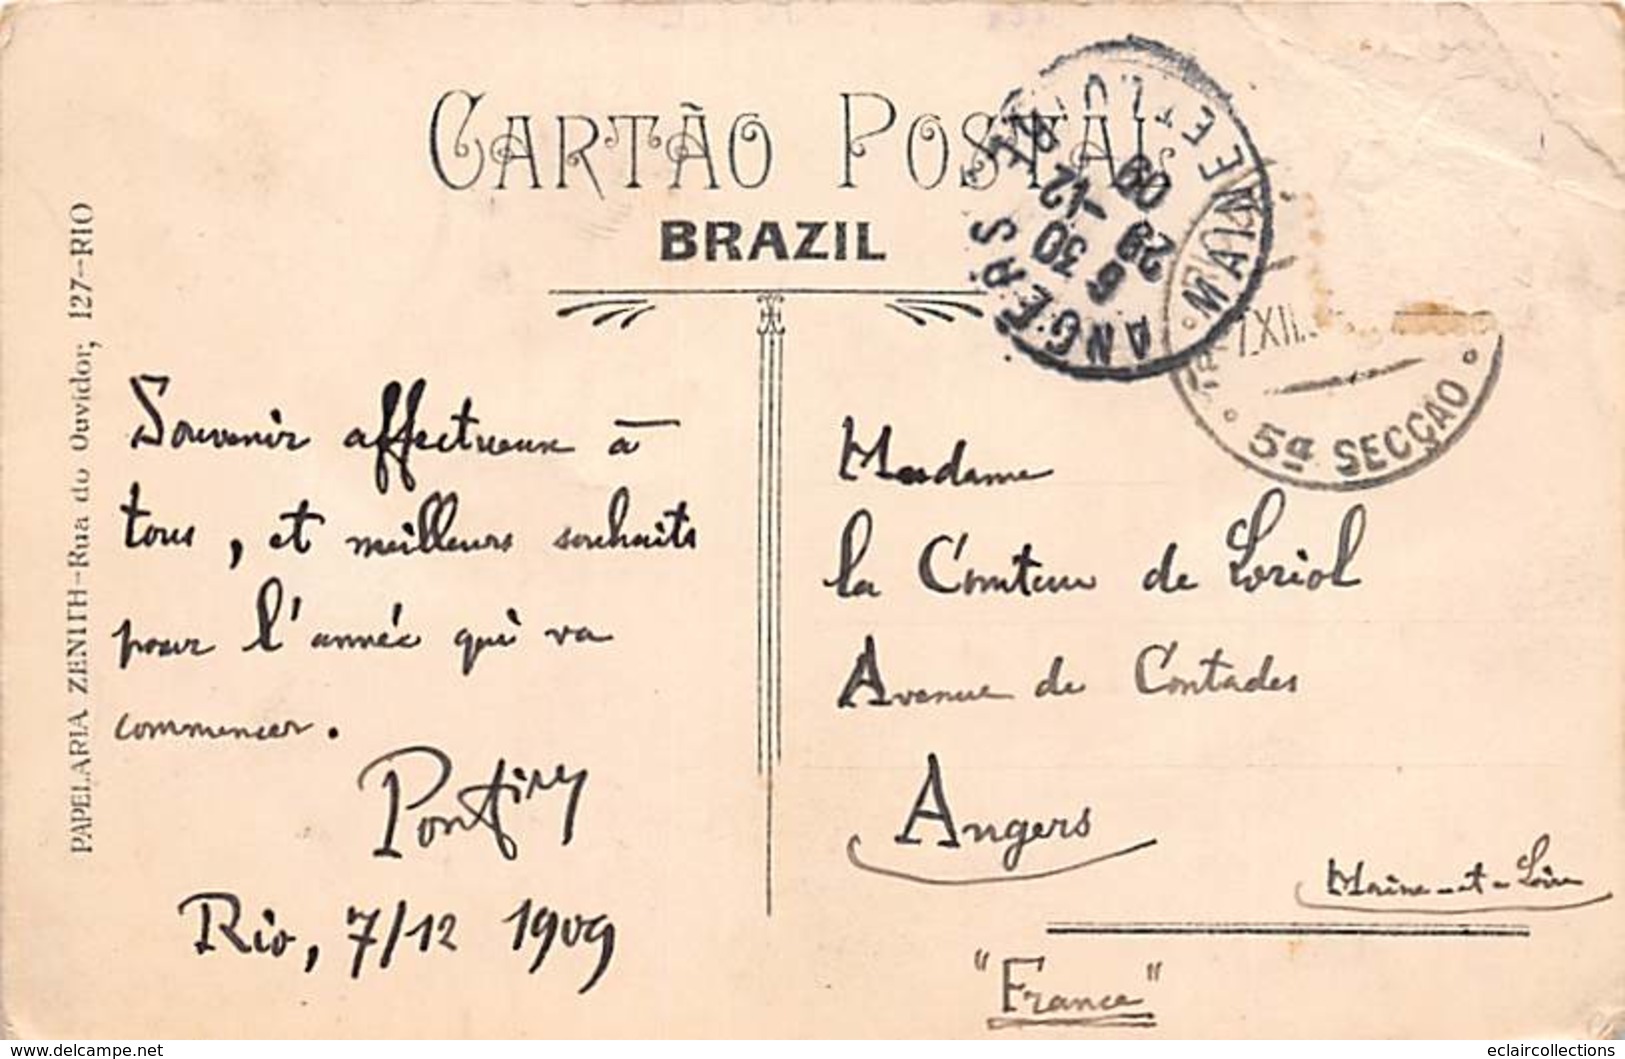 CARTÃO POSTAL
BRAZIL
PAPELARIA ZENITH-Rua do Ouvidor, 127-RIO
ANGERS
MAINE ET LOIRE
6 30
29 - 12
09
7 XII
5ª SECÇAO
Souvenir affectueux à
tous, et meilleurs souhaits
pour l'année qui va
commencer.
Rio, 7/12 1909
Madame
la Comtesse de Loriol
Avenue de Contades
Angers
Maine-et-Loire
"France"
delcampe.net
eclaircollections